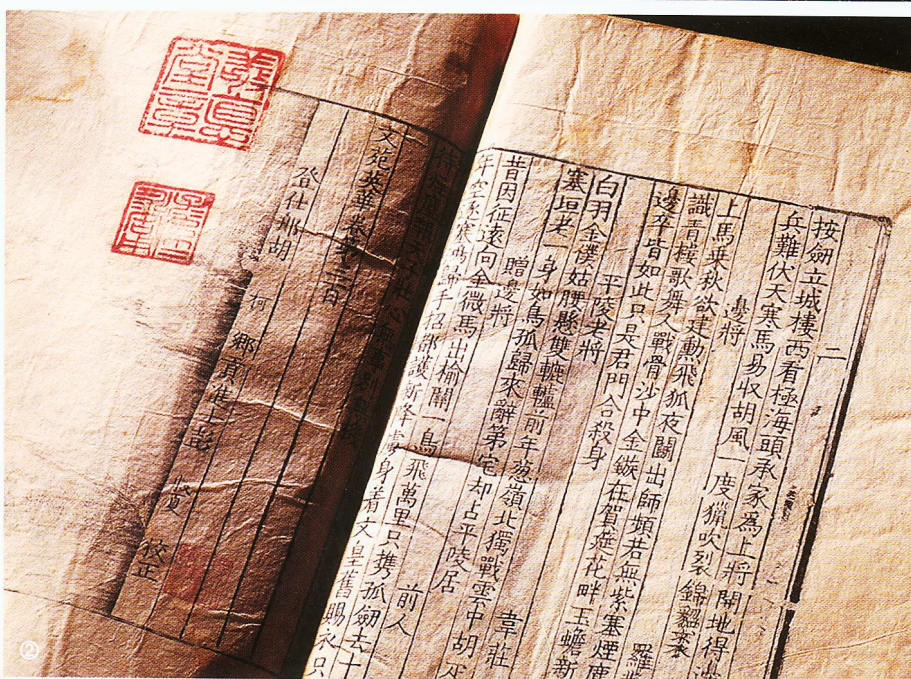 二
按劍立城樓西看極海頭承家爲上將開地得
兵難伏天寒馬易収胡風一度獵吹裂錦貂裘
邊將 羅
上馬乗秋欲建勲飛狐夜闘出師頻若無紫塞煙
識青樓歌舞人戰骨沙中金鏃在賀筵花畔玉蟾新
邊卒皆如此只是君門合殺身
平陵老將 韋莊
白羽金僕姑腰懸雙轆轤前年葱嶺北獨戰雲中胡
塞垣老一身如鳥孤歸來辭第宅却占平陵居
贈邊將 前人
昔因征遠向金微馬出榆關一鳥飛萬里只携孤劍去十
年空逐塞鴻歸手招都護新降虜身着文皇舊賜衣只
文苑英華卷第三百
登仕郎胡 柯 鄉貢進士彭 叔夏 校正
②